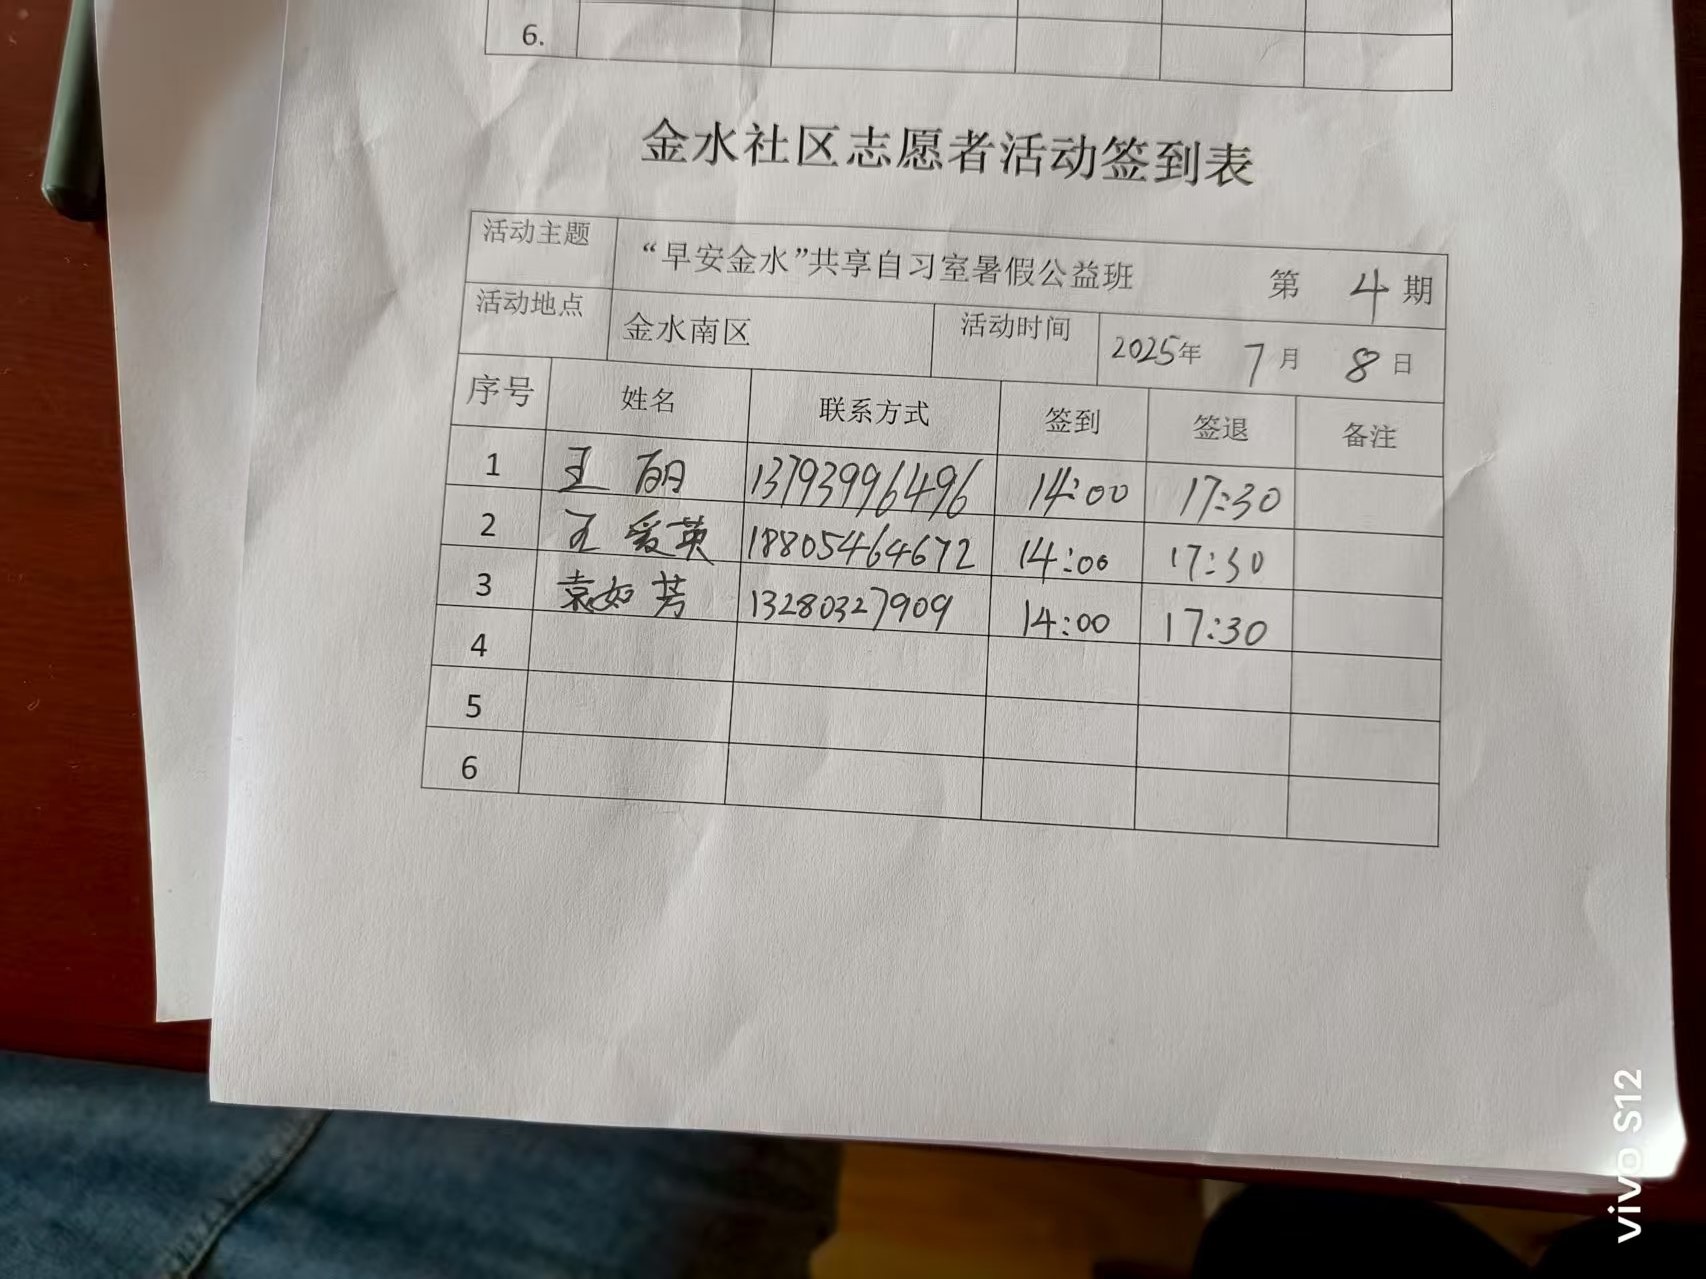 6.
金水社区志愿者活动签到表
活动主题 “早安金水”共享自习室暑假公益班 第 4 期
活动地点 金水南区 活动时间 2025年 7月 8日
序号 姓名 联系方式 签到 签退 备注
1 王 13793996496 14:00 17:30
2 王爱英 18805464672 14:00 17:30
3 袁如芳 13280327909 14:00 17:30
4
5
6
vivo S12